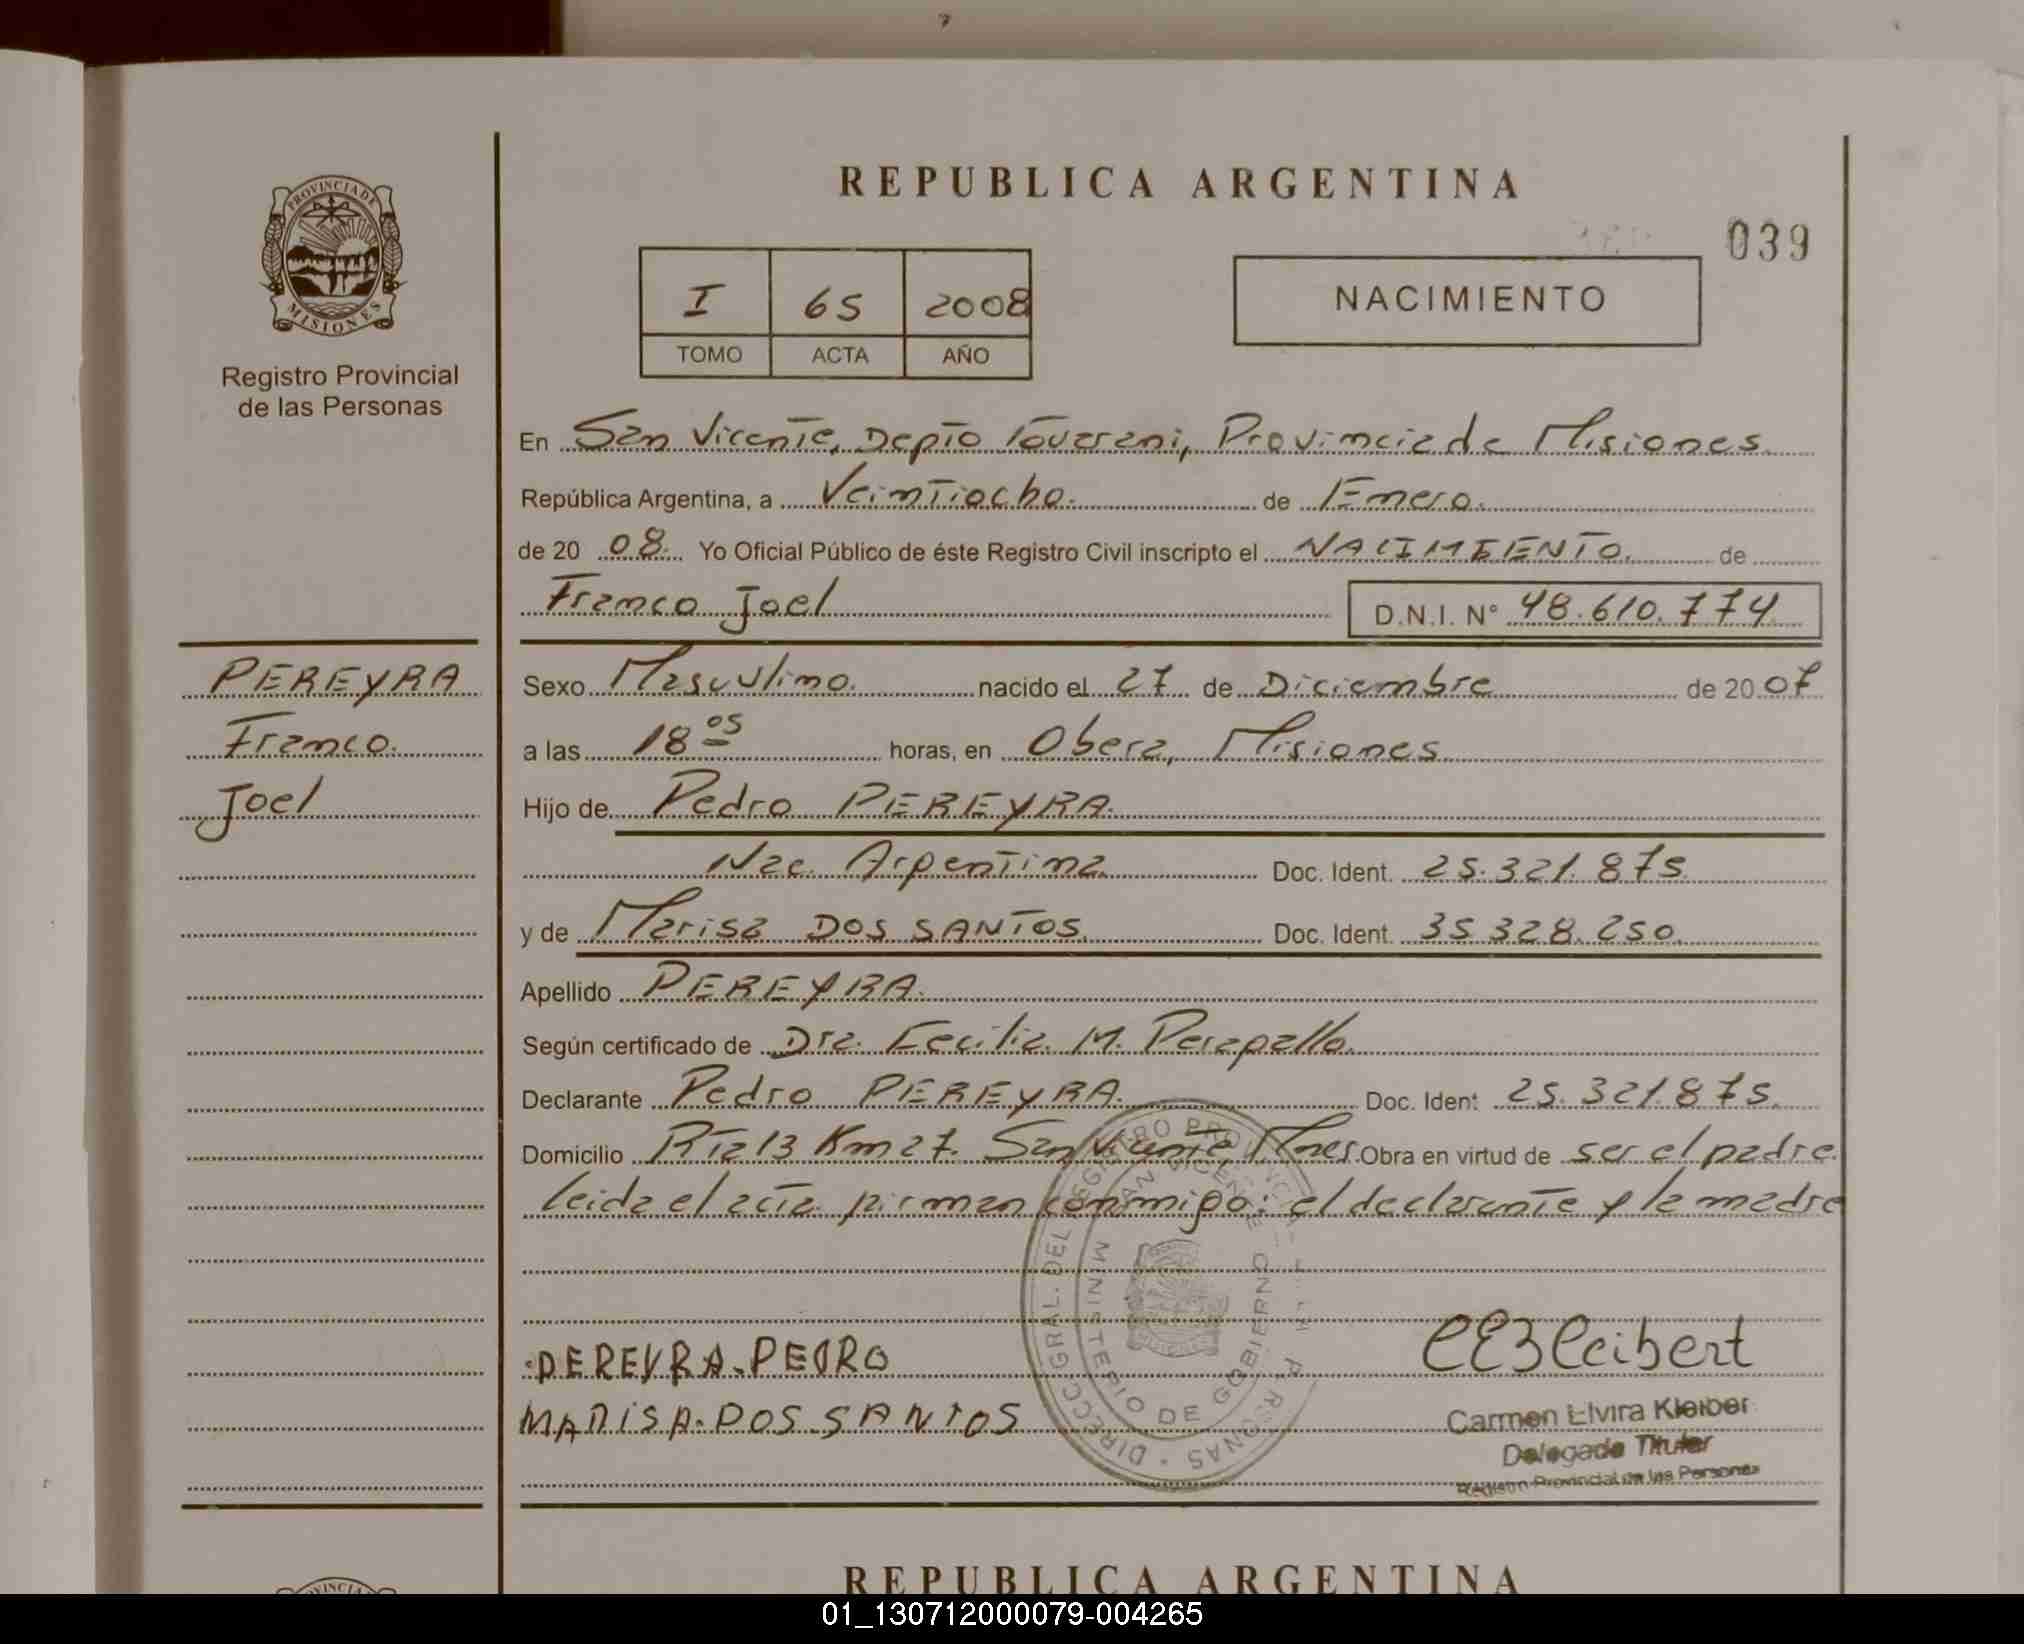 REPUBLICA ARGENTINA
039
PROVINCIA DE MISIONES
Registro Provincial
de las Personas
I 65 2008
TOMO ACTA AÑO
NACIMIENTO
En San Vicente, Depto Guarani, Provincia de Misiones
República Argentina, a Veintiocho. de Enero.
de 20 08. Yo Oficial Público de éste Registro Civil inscripto el NACIMIENTO. de
Franco Joel D.N.I. N° 48.610.774
PEREYRA
Franco.
Joel
Sexo Masculino. nacido el 27 de Diciembre de 20 07
a las 18 05 horas, en Obera, Misiones
Hijo de Pedro PEREYRA.
Nac. Argentina Doc. Ident. 25.321.875.
y de Marisa DOS SANTOS. Doc. Ident. 35.328.250.
Apellido PEREYRA.
Según certificado de Dra. Cecilia M.
Declarante Pedro PEREYRA. Doc. Ident 25.321.875.
Domicilio Rta 13 Km 27. San Vicente, Mnes. Obra en virtud de ser el padre.
leida el acta firman conmigo: el declarante y la madre
DIRECC. GRAL. DEL REGISTRO PROVINCIAL PERSONAS
SAN VICENTE
MINISTERIO DE GOBIERNO
PEREYRA. PEDRO
MARISA. DOS SANTOS
Carmen Elvira Kleiber
Delegada Titular
Registro Provincial de las Personas
REPUBLICA ARGENTINA
01_130712000079-004265